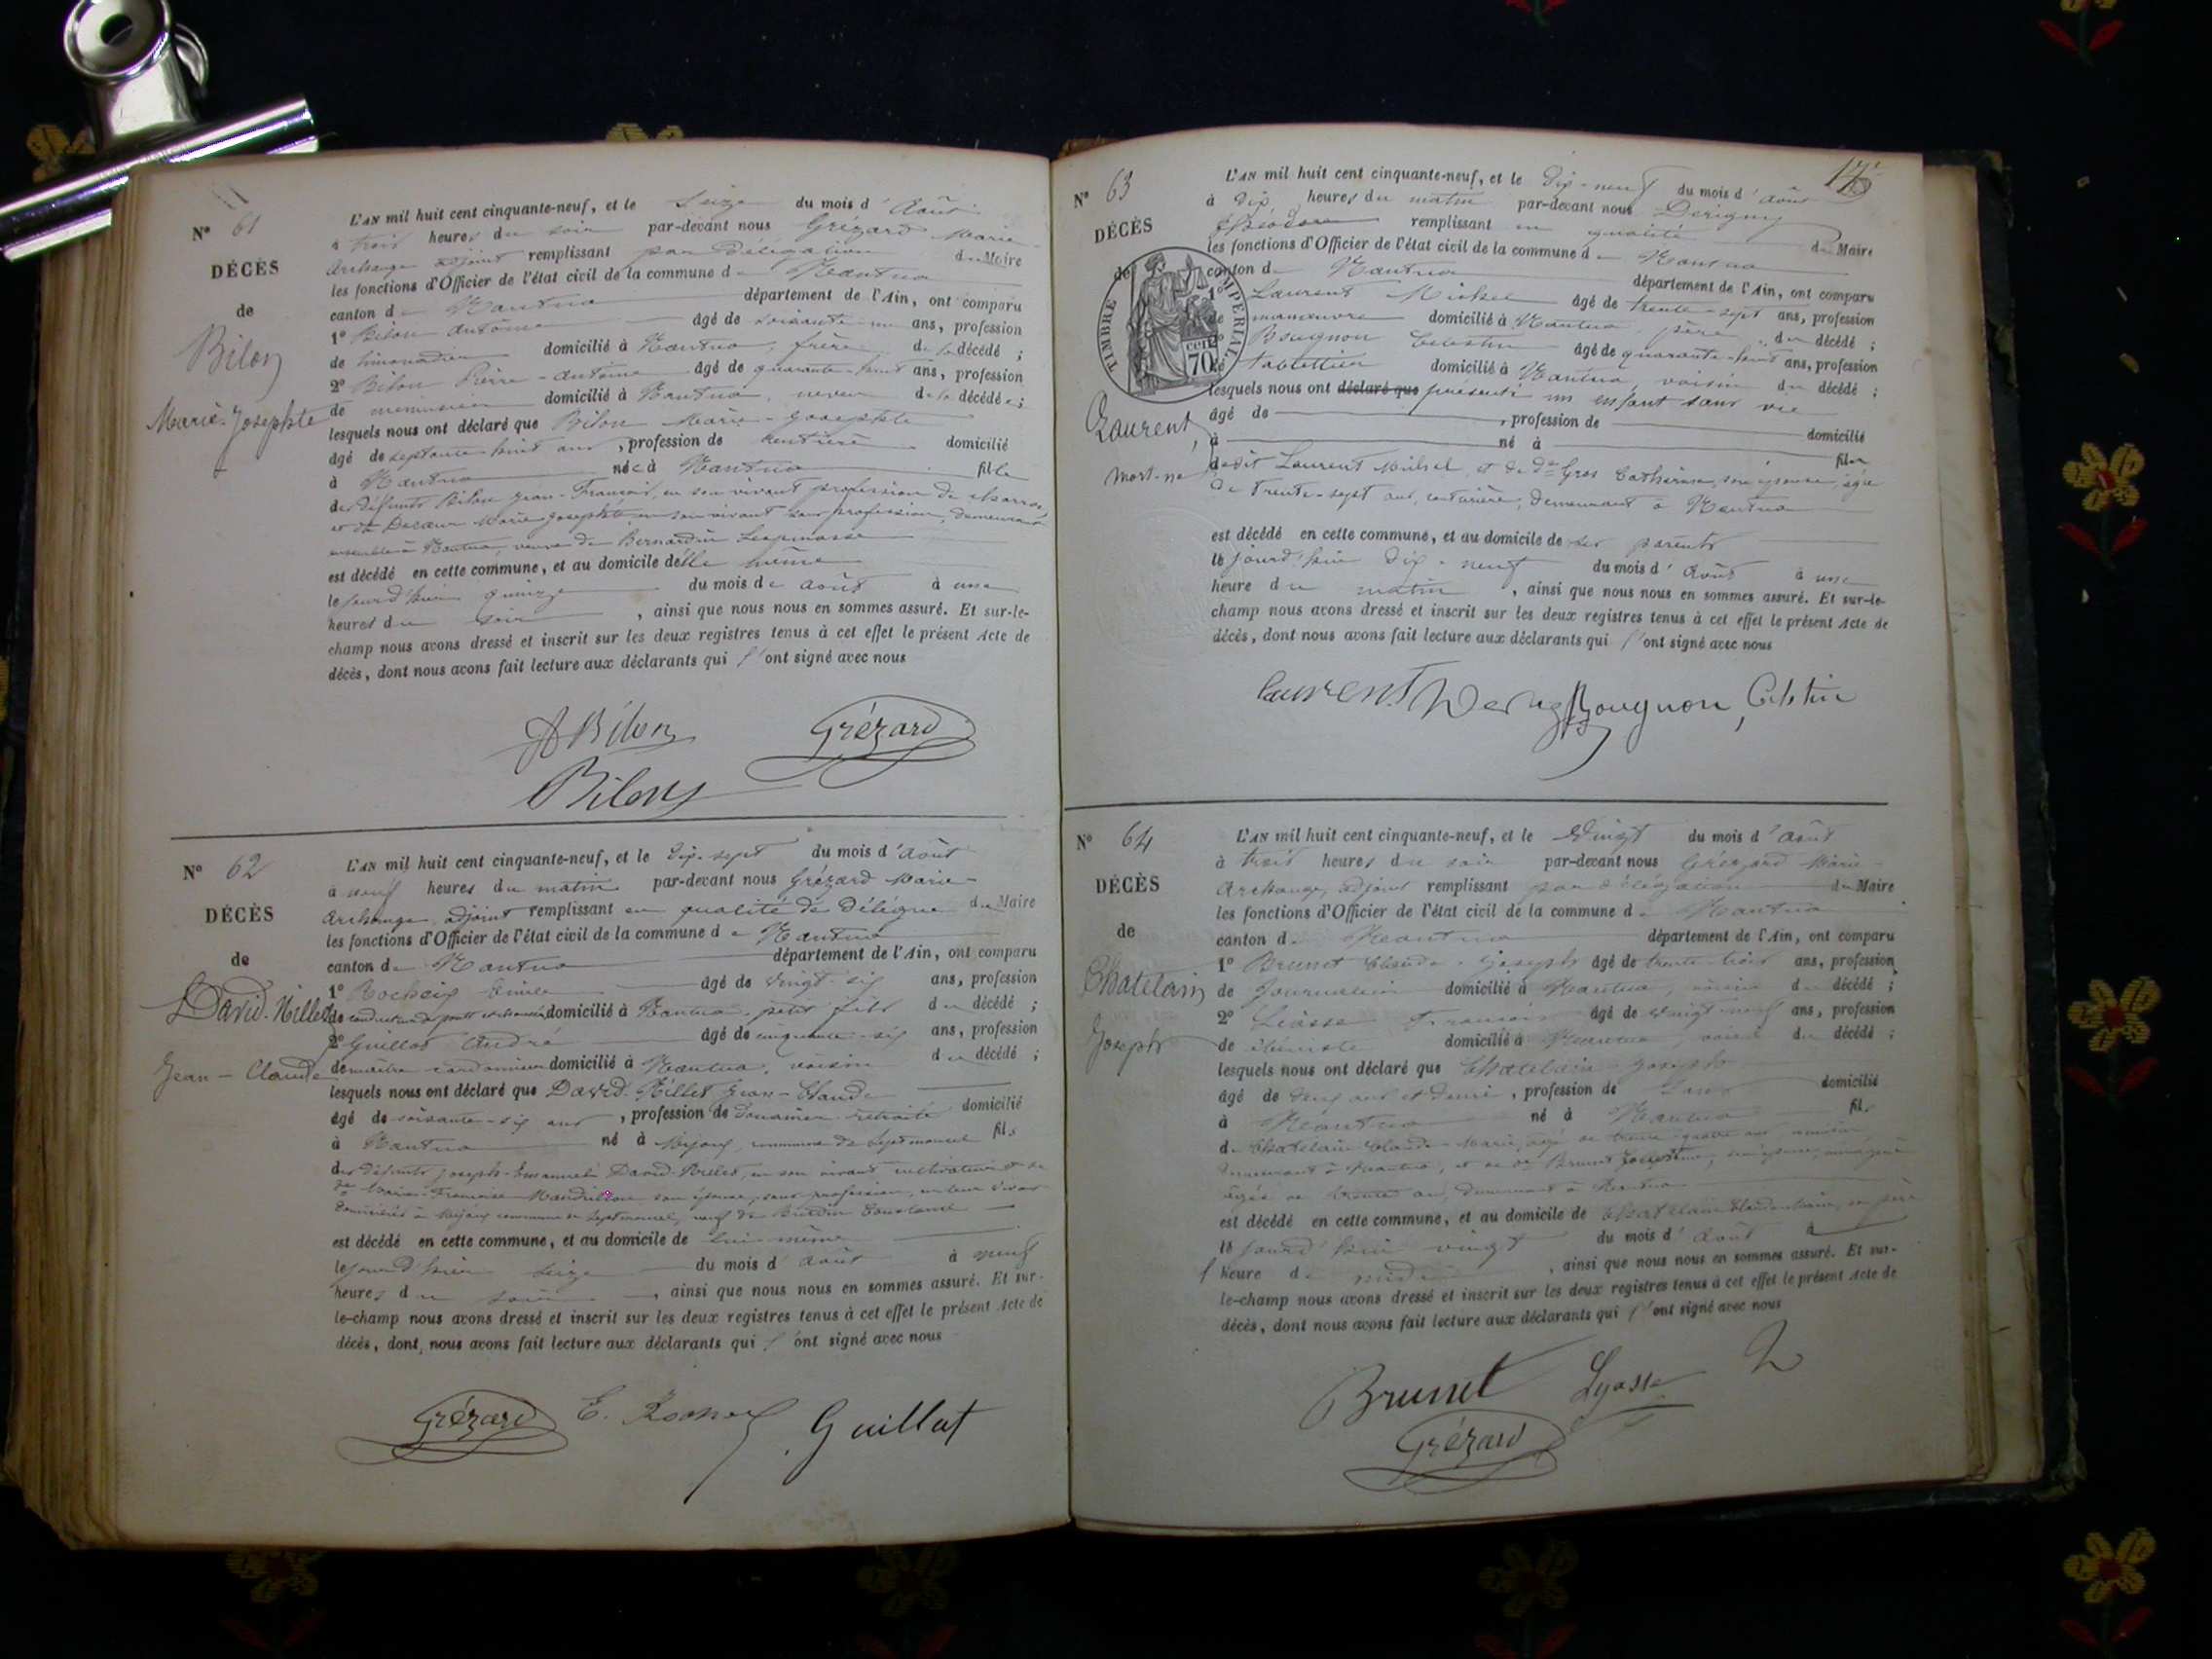 N° 61
DÉCÈS
de
Bilon
Marie-Josephte
L'AN mil huit cent cinquante-neuf, et le seize du mois d'Août
à trois heures du soir par-devant nous Grézard Marie-
Archange adjoint remplissant par délégation du Maire
les fonctions d'Officier de l'état civil de la commune de Nantua
canton de Nantua département de l'Ain, ont comparu
1° Bilon Antoine âgé de soixante-un ans, profession
de limonadier domicilié à Nantua, frère de la décédée ;
2° Bilon Pierre-Antoine âgé de quarante-huit ans, profession
de menuisier domicilié à Nantua, neveu de la décédée ;
lesquels nous ont déclaré que Bilon Marie-Josephte
âgé de septante huit ans, profession de rentière domicilié
à Nantua née à Nantua fille
des défunts Bilon Jean-François, en son vivant profession de charron,
et de Marie-Josephte en son vivant sans profession, demeurant
ensemble à Nantua, veuve de Bernardin
est décédé en cette commune, et au domicile d'elle même
le jourd'hier quinze du mois de août à une
heures du soir, ainsi que nous nous en sommes assuré. Et sur-le-
champ nous avons dressé et inscrit sur les deux registres tenus à cet effet le présent Acte de
décès, dont nous avons fait lecture aux déclarants qui l'ont signé avec nous
A Bilon Grézard
Bilon
N° 62
DÉCÈS
de
David-Nillet
Jean-Claude
L'AN mil huit cent cinquante-neuf, et le dix-sept du mois d'Août
à neuf heures du matin par-devant nous Grézard Marie-
Archange, adjoint remplissant en qualité de délégué du Maire
les fonctions d'Officier de l'état civil de la commune de Nantua
canton de Nantua département de l'Ain, ont comparu
1° Rochaix Emile âgé de vingt-six ans, profession
de conducteur de ponts et chaussées domicilié à Nantua, petit fils du décédé ;
2° Guillot André âgé de cinquante-six ans, profession
de maître cordonnier domicilié à Nantua, voisin du décédé ;
lesquels nous ont déclaré que David-Nillet Jean-Claude
âgé de soixante-six ans, profession de Douanier retraité domicilié
à Nantua né à Mijoux, commune de Septmoncel fils
des défunts Joseph-Emmanuel David-Nillet, en son vivant cultivateur et de
de Marie-Françoise Mandrillon son épouse, sans profession, en leur vivant
domiciliés à Mijoux commune de Septmoncel, veuf de Constance
est décédé en cette commune, et au domicile de lui-même
le jourd'hier seize du mois d'août à neuf
heures du soir, ainsi que nous nous en sommes assuré. Et sur-
le-champ nous avons dressé et inscrit sur les deux registres tenus à cet effet le présent Acte de
décès, dont nous avons fait lecture aux déclarants qui l'ont signé avec nous
Grézard E. Rochaix Guillot
N° 63
DÉCÈS
de
Laurent,
mort-né
TIMBRE IMPERIAL
70 cent
L'AN mil huit cent cinquante-neuf, et le dix-neuf du mois d'Août
à dix heures du matin par-devant nous Derigny
Théodore remplissant en qualité de Maire
les fonctions d'Officier de l'état civil de la commune de Nantua
canton de Nantua département de l'Ain, ont comparu
1° Laurent Michel âgé de trente-sept ans, profession
de manoeuvre domicilié à Nantua, père du décédé ;
2° Bougnon Celestin âgé de quarante-huit ans, profession
de tablettier domicilié à Nantua, voisin du décédé ;
lesquels nous ont déclaré que présenté un enfant sans vie
âgé de , profession de domicilié
à né à fils
dudit Laurent Michel, et de de Gros Catherine, son épouse, âgée
de trente-sept ans, couturière, demeurant à Nantua
est décédé en cette commune, et au domicile de ses parents
le jourd'hui dix-neuf du mois d'Août à une
heure du matin, ainsi que nous nous en sommes assuré. Et sur-le-
champ nous avons dressé et inscrit sur les deux registres tenus à cet effet le présent Acte de
décès, dont nous avons fait lecture aux déclarants qui l'ont signé avec nous
Laurent Bougnon, Celestin
N° 64
DÉCÈS
de
Chatelain
Joseph
L'AN mil huit cent cinquante-neuf, et le vingt du mois d'Août
à trois heures du soir par-devant nous Grézard Marie-
Archange, adjoint remplissant par délégation du Maire
les fonctions d'Officier de l'état civil de la commune de Nantua
canton de Nantua département de l'Ain, ont comparu
1° Brunet Claude-Joseph âgé de trente-trois ans, profession
de journalier domicilié à Nantua, du décédé ;
2° François âgé de vingt-neuf ans, profession
de ébéniste domicilié à Nantua, voisin du décédé ;
lesquels nous ont déclaré que Chatelain Joseph
âgé de deux ans et demi, profession de sans domicilié
à Nantua né à Nantua fils
de Chatelain Claude-Marie, âgé de trente-quatre ans,
demeurant à Nantua, et de de Brunet son épouse,
âgée de trente ans, demeurant à Nantua
est décédé en cette commune, et au domicile de Chatelain Claude-Marie, son père
le jourd'hui vingt du mois d'Août à
heure de midi, ainsi que nous nous en sommes assuré. Et sur-
le-champ nous avons dressé et inscrit sur les deux registres tenus à cet effet le présent Acte de
décès, dont nous avons fait lecture aux déclarants qui l'ont signé avec nous
Brunet Lyasse
Grézard